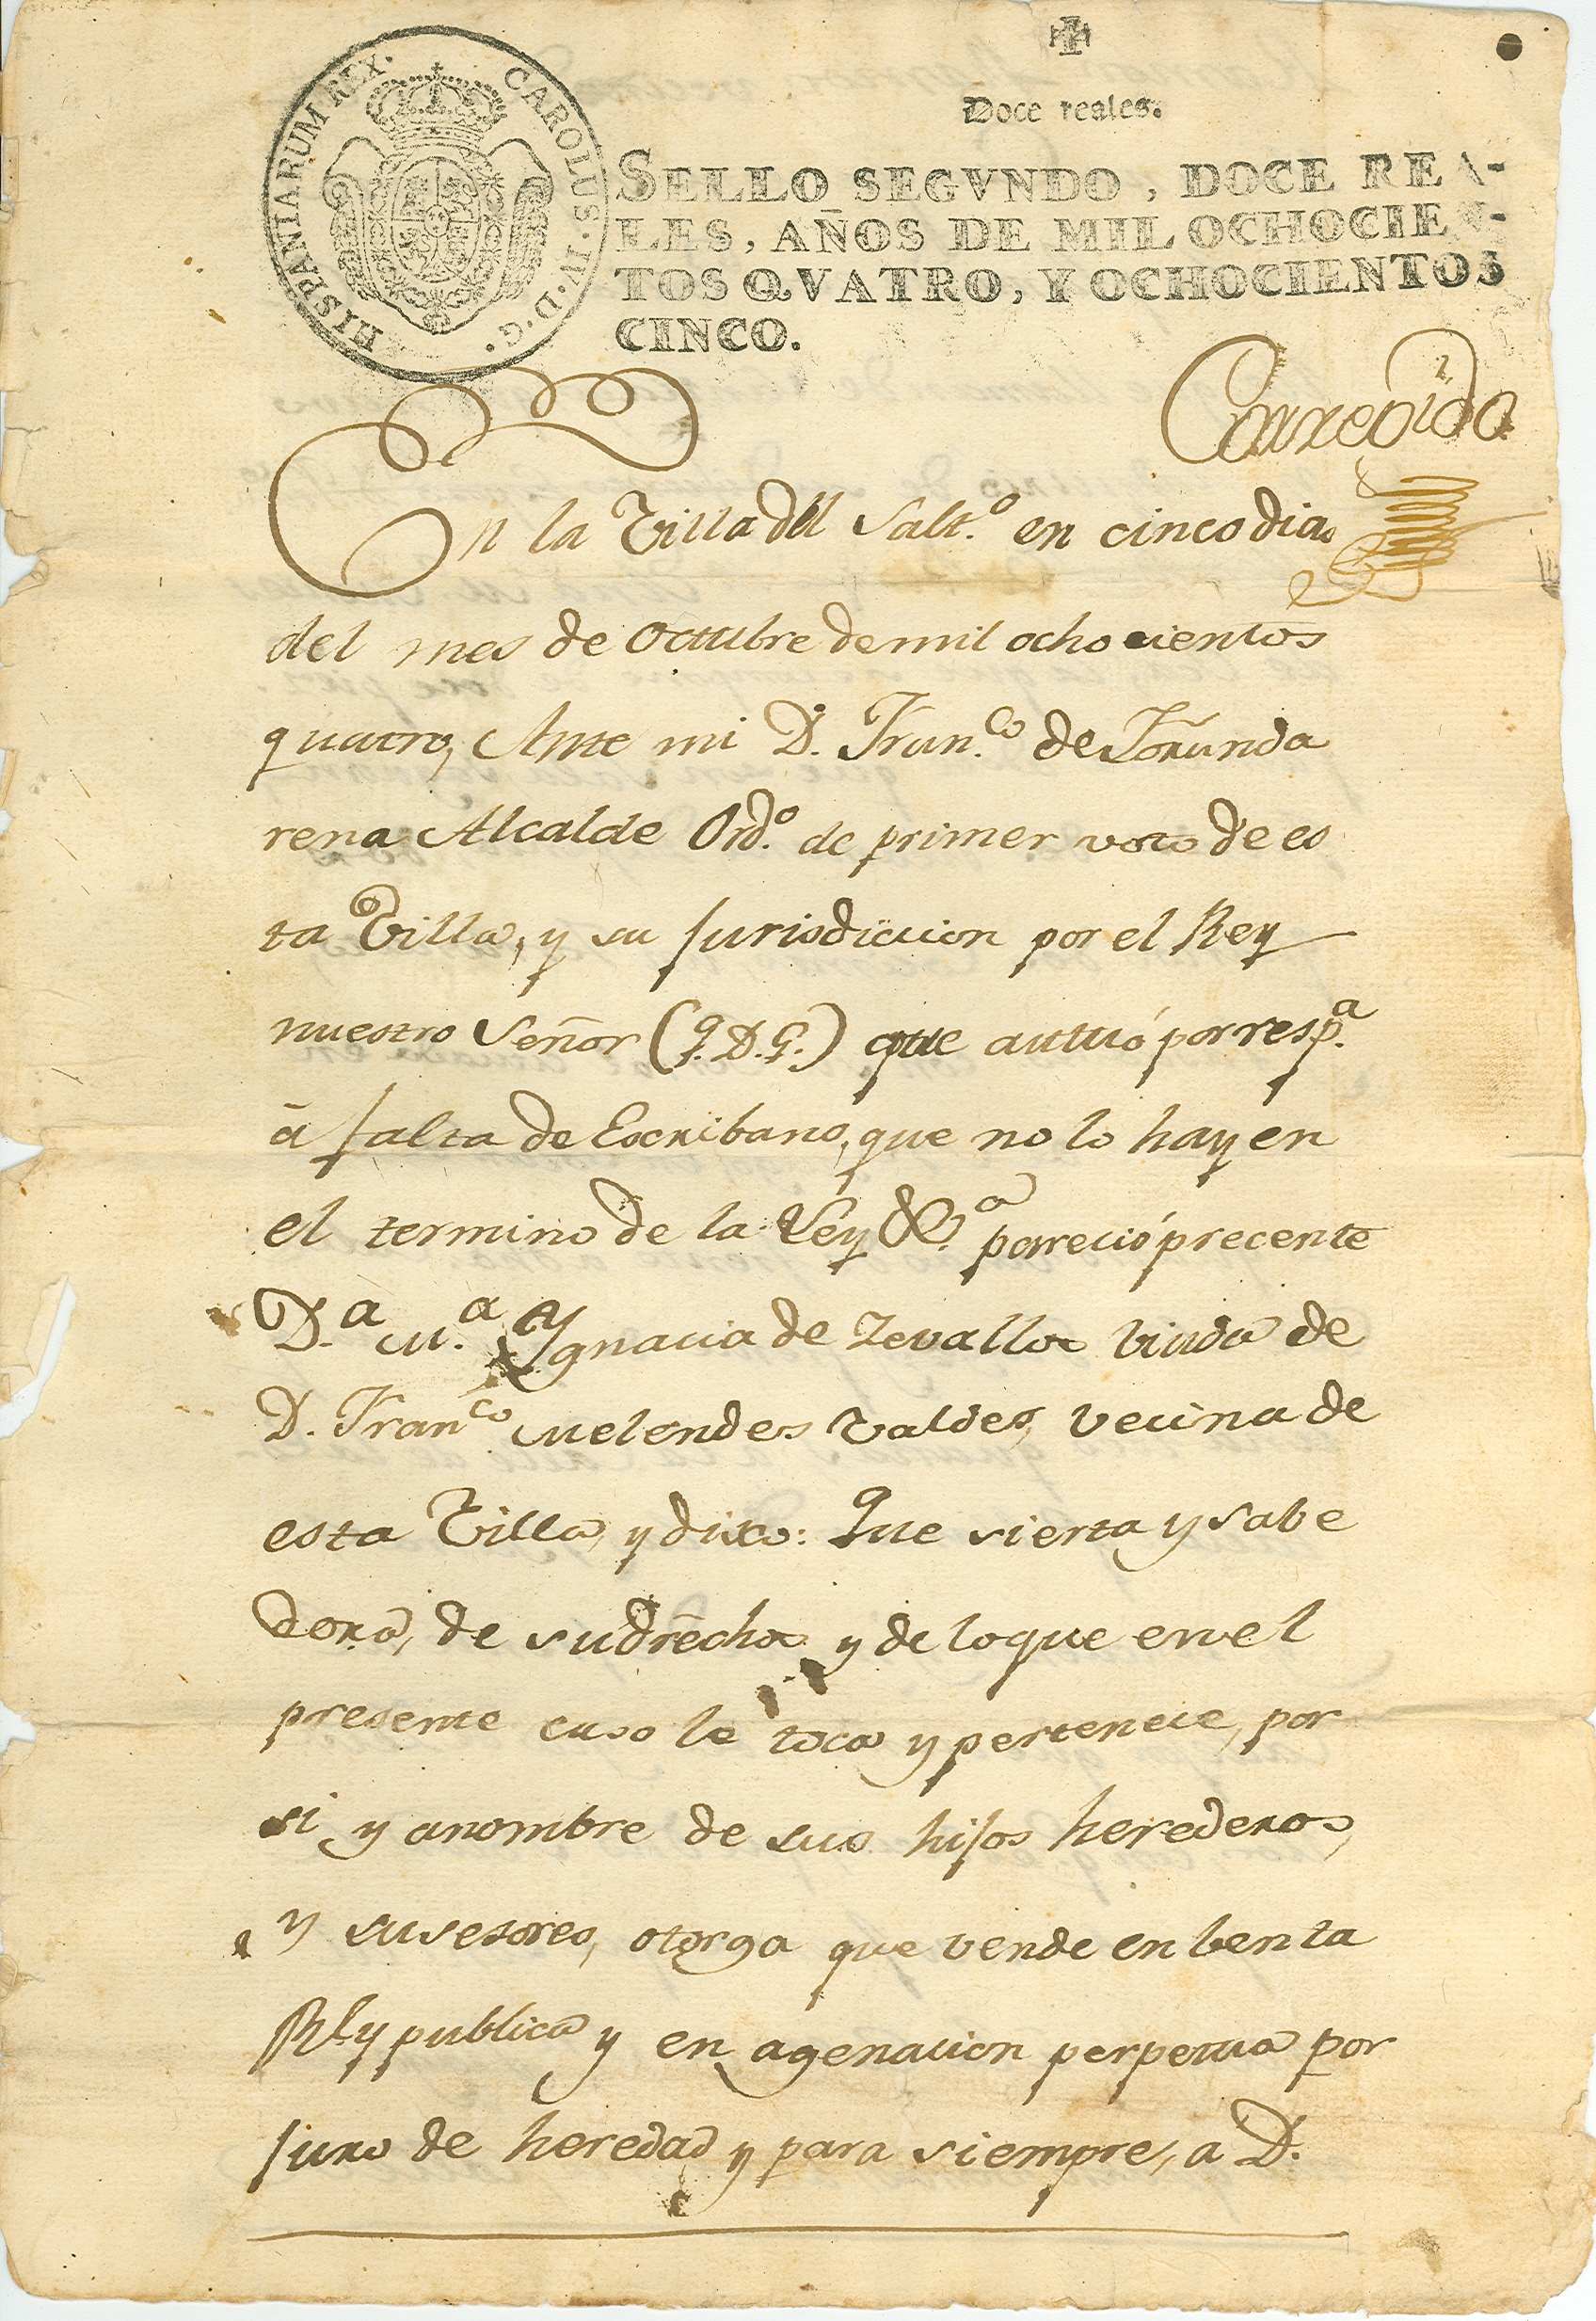 CAROLUS · IV · D · G · HISPANIARUM REX ·
Doce reales.
SELLO SEGVNDO, DOCE REA-
LES, AÑOS DE MIL OCHOCIEN-
TOS QVATRO, Y OCHOCIENTOS
CINCO.
Corregido
En la Villa del Salt.º en cinco dias
del mes de Octubre de mil ochocientos
quatro, Ante mi D. Fran.co de
rena Alcalde Ord.º de primer voto de es
ta Villa, y su Jurisdiccion por el Rey
nuestro Señor (q. D. G.) que autuó por resp.a
á falta de Escribano, que no lo hay en
el termino de la Ley &.a parecio precente
D.a M.a Ygnacia de Zevallos Viuda de
D. Fran.co Melendes Valdes, vecina de
esta Villa, y dixo: Que sierta y sabe
dora, de su drecho y de lo que en el
presente caso le toca y pertenece, por
si y a nombre de sus hijos herederos,
y susesores, otorga que vende en benta
Rl y publica y en agenacion perpetua por
juro de heredad y para siempre, a D.